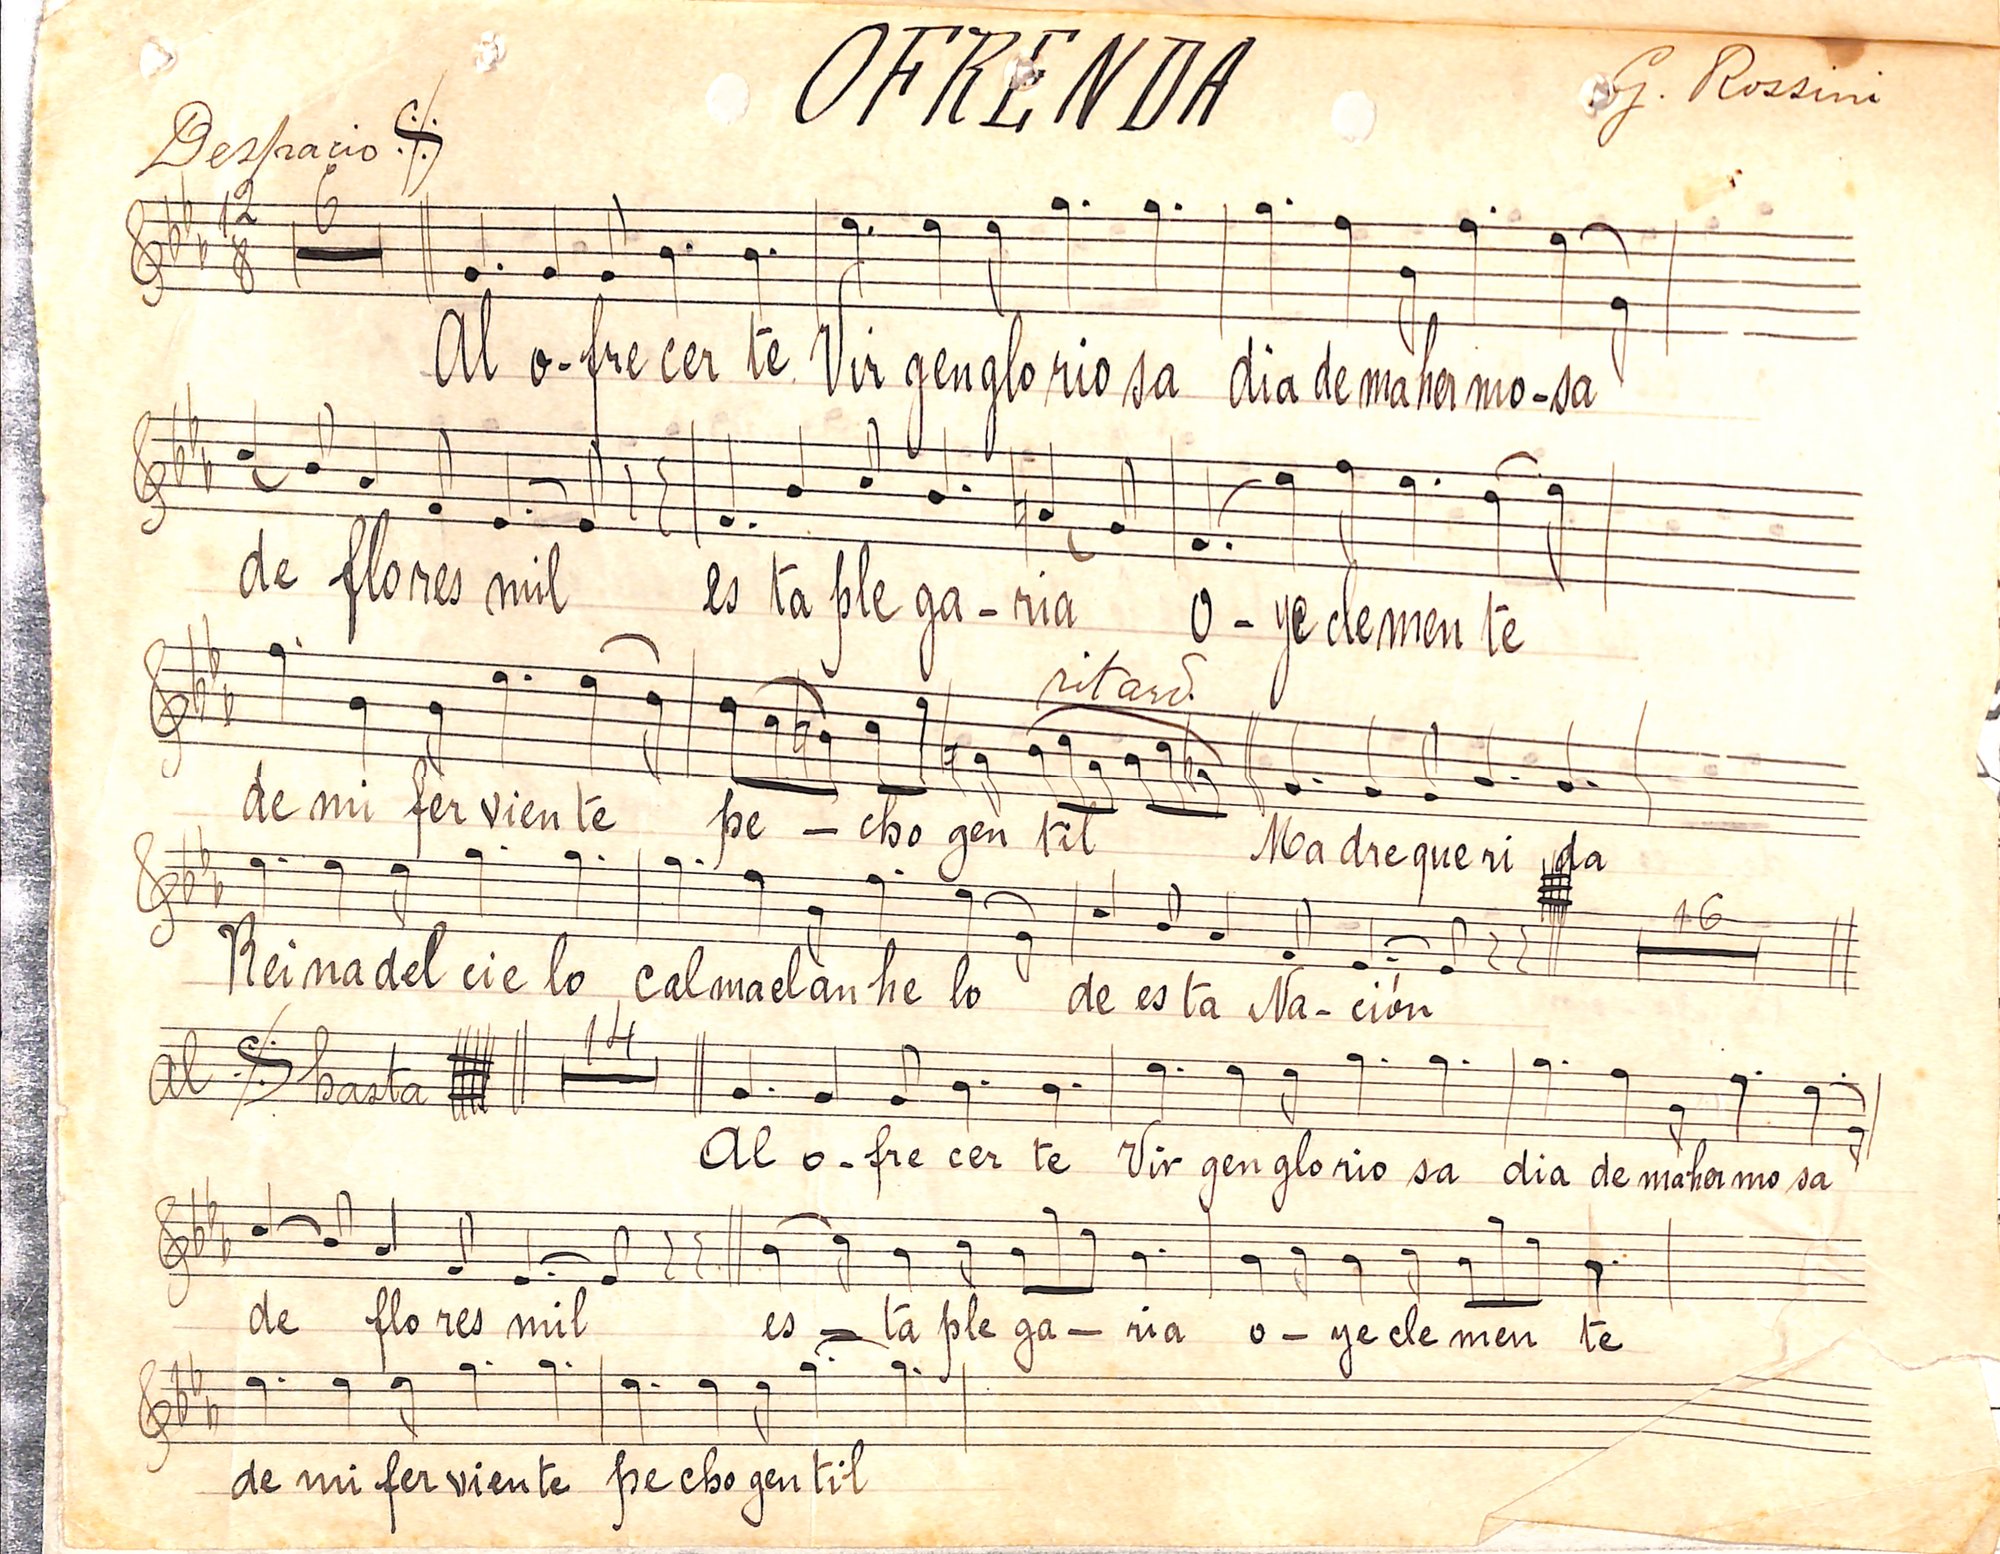 OFRENDA
G. Rossini
Despacio
12
8
6
Al o-fre cer te Vir gen glo rio sa dia de ma her mo-sa
de flo res mil es ta ple ga-ria o-ye cle men te
ritard.
de mi fer vien te pe - cho gen til Ma dre que ri da
16
Rei na del cie lo cal ma el an he lo de es ta Na-ción
Al hasta 14
Al o-fre cer te Vir gen glo rio sa dia de ma her mo sa
de flo res mil es - ta ple ga - ria o - ye cle men te
de mi fer vien te pe cho gen til